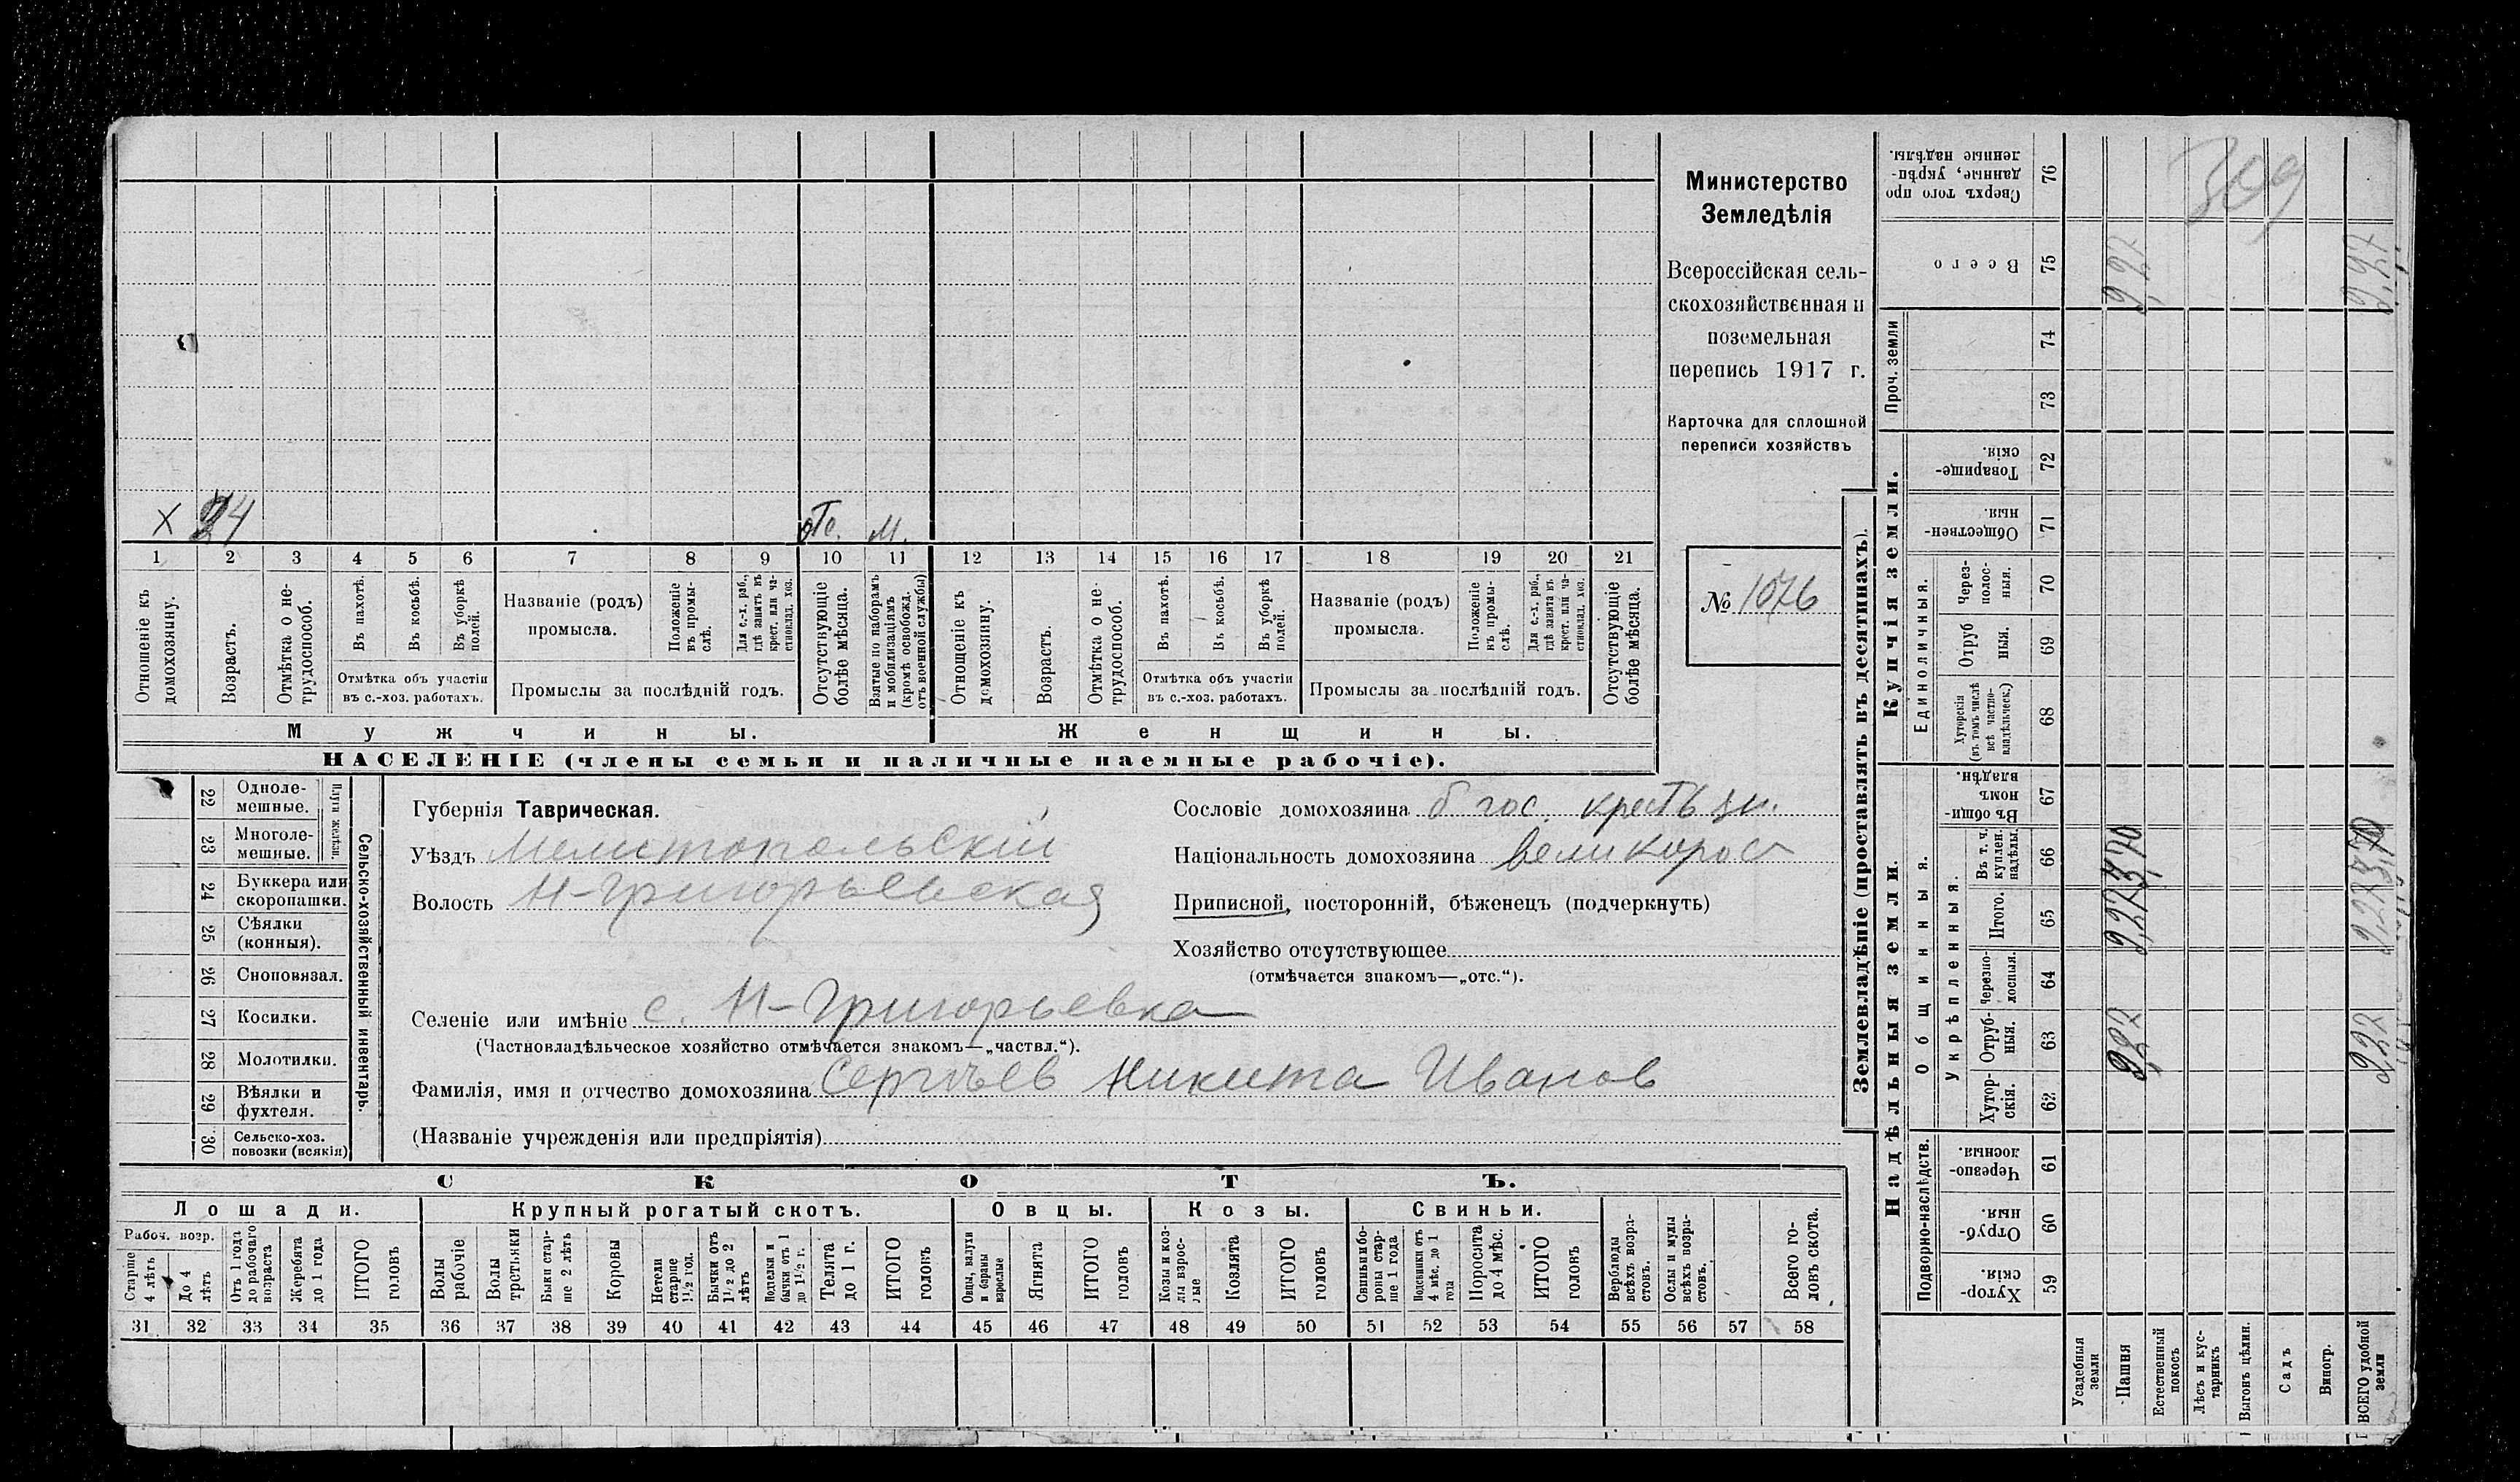 Министерство
Земледѣлія
Всероссійская сель-
скохозяйственная и
поземельная
перепись 1917 г.
Карточка для сплошной
переписи хозяйствъ
№ 1076
х 24 отс. м.
1 2 3 4 5 6 7 8 9 10 11 12 13 14 15 16 17 18 19 20 21
Отношеніе къ домохозяину.
Возрастъ.
Отмѣтка о не-трудоспособ.
Въ пахотѣ.
Въ косьбѣ.
Въ уборкѣ полей.
Отмѣтка объ участіи
въ с.-хоз. работахъ.
Названіе (родъ)
промысла.
Положеніе въ промы-слѣ.
Для с.-х. раб., гдѣ занятъ въ крест. или ча-стновлад. хоз.
Промыслы за послѣдній годъ.
Отсутствующіе болѣе мѣсяца.
Взятые по наборамъ и мобилизаціямъ (кромѣ освобожд. отъ военной службы)
Отношеніе къ домохозяину.
Возрастъ.
Отмѣтка о не-трудоспособ.
Въ пахотѣ.
Въ косьбѣ.
Въ уборкѣ полей.
Отмѣтка объ участіи
въ с.-хоз. работахъ.
Названіе (родъ)
промысла.
Положеніе въ промы-слѣ.
Для с.-х. раб., гдѣ занята въ крест. или ча-стновлад. хоз.
Промыслы за послѣдній годъ.
Отсутствующіе болѣе мѣсяца.
Мужчины. Женщины.
НАСЕЛЕНІЕ (члены семьи и наличные наемные рабочіе).
22 Одноле-мешные.
23 Многоле-мешные.
Плуги желѣзн.
24 Буккера или скоропашки.
25 Сѣялки (конныя).
26 Сноповязал.
27 Косилки.
28 Молотилки.
29 Вѣялки и фухтеля.
30 Сельско-хоз. повозки (всякія)
Сельско-хозяйственный инвентарь.
Губернія Таврическая.
Уѣздъ Мелитопольскій
Волость Н-Григорьевская
Сословіе домохозяина б. гос. крестьян.
Національность домохозяина великоросс
Приписной, посторонній, бѣженецъ (подчеркнуть)
Хозяйство отсутствующее
(отмѣчается знакомъ—„отс.“).
Селеніе или имѣніе с. Н-Григорьевка
(Частновладѣльческое хозяйство отмѣчается знакомъ—„частвл.“).
Фамилія, имя и отчество домохозяина Сергѣев Никита Иванов
(Названіе учрежденія или предпріятія)
СКОТЪ.
Лошади. Крупный рогатый скотъ. Овцы. Козы. Свиньи.
Рабоч. возр.
Старше 4 лѣтъ
До 4 лѣтъ
Отъ 1 года до рабочаго возраста
Жеребята до 1 года
ИТОГО головъ
Волы рабочіе
Волы третьяки
Быки стар-ше 2 лѣтъ
Коровы
Нетели старше 1½ год.
Бычки отъ 1½ до 2 лѣтъ
Подтелки и бычки отъ 1 до 1½ г.
Телята до 1 г.
ИТОГО головъ
Овцы, валухи и бараны взрослые
Ягнята
ИТОГО головъ
Козы и коз-лы взрос-лые
Козлята
ИТОГО головъ
Свиньи и бо-ровы стар-ше 1 года
Подсвинки отъ 4 мѣс. до 1 года
Поросята до 4 мѣс.
ИТОГО головъ
Верблюды всѣхъ возра-стовъ.
Ослы и мулы всѣхъ возра-стовъ.
Всего го-ловъ скота.
31 32 33 34 35 36 37 38 39 40 41 42 43 44 45 46 47 48 49 50 51 52 53 54 55 56 57 58
Землевладѣніе (проставлять въ десятинахъ).
Надѣльныя земли. Купчія земли. Проч. земли
Подворно-наслѣдств.
Общинныя.
Укрѣпленныя.
Единоличныя.
59 Хутор-скія.
60 Отруб-ныя.
61 Черезпо-лосныя.
62 Хутор-скія.
63 Отруб-ныя.
64 Черезпо-лосныя.
65 Итого.
66 Въ т. ч. куплен. надѣлы.
67 Въ общи-номъ владѣн.
68 Хуторскія (въ томъ числѣ всѣ частно-владѣльческ.)
69 Отруб ныя.
70 Через-полос-ныя.
71 Обществен-ныя.
72 Товарище-скія.
73
74
75 Всего
76 Сверхъ того про данные, укрѣп-ленные надѣлы.
Усадебныя земли
Пашня
Естественный покосъ
Лѣсъ и кус-тарникъ
Выгонъ цѣлин.
Садъ
Виногр.
ВСЕГО удобной земли